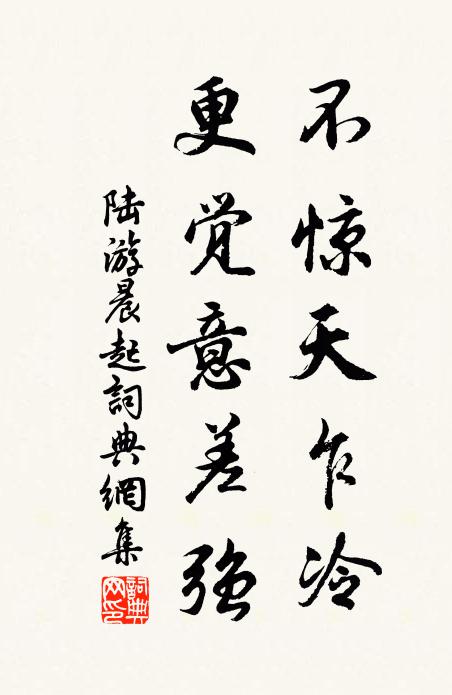 不惊天乍冷
更觉意差强
陆游晨起詞典網集
詞典网印